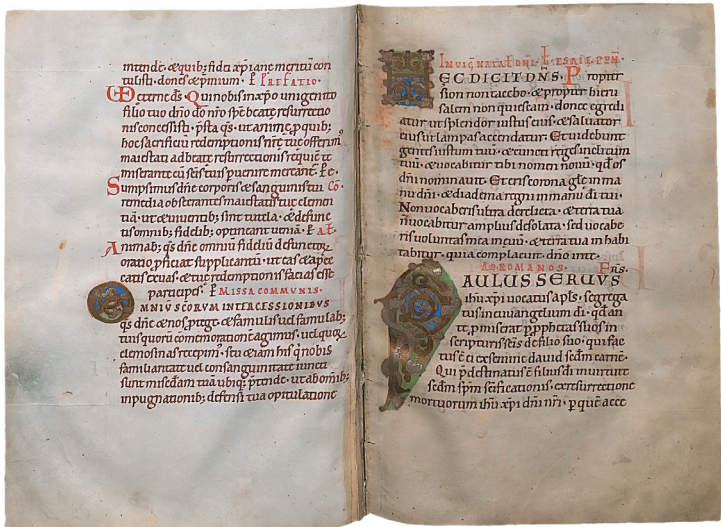 intende. & quib; fidei xpiane meritũ con
tulisti. dones & p̃mium. P PREFATIO.
VD Eterne ds. Qui nobis in xpo unigenito
filio tuo dño dõ nr̃o spẽ beatę resurrectio
nis concessisti. p̃sta qs. ut animę, p quib;
hoc sacrificiũ redemptionis nr̃ę tuę offerim
maiestati. ad beatę resurrectionis requiẽ te
miserante cũ sc̃is tuis p̃uenire mereant̃.
Sumpsimus dñe corporis & sanguinis tui Cõ.
remedia obsecrantes maiestatis tuę clemen
tiã. ut & uiuentib; sint tutela. & defunc
tis omnib; fidelib; optineant ueniã.
Animab; qs dñe omniũ fideliũ defunctoꝝ
oratio p̃ficiat supplicantiũ. ut eas & a pec
catis exuas. & tuę redemptionis facias esse
participes. MISSA COMMUNIS.
OMNIŨ SCORVM INTERCESSIONIBVS
qs dñe & nos p̃tege. & famulis uel famulab;
tuis quorũ comemorationẽ agimus. uel quoꝝ
elemosinas recepim. seu &iam his q̃ nobis
familiaritate uel consanguinitate iuncti
sunt misc̃dam tuã ubiq; p̃tende. ut ab omib;
inpugnationib; defensi tua opitulatione
IN VIG NATAL DNI. L. ESAIE PPH.
HEC DICIT DNS. Propter
sion non tacebo. & propter hieru
salem non quiescam. donec egredi
atur ut splendor iustus eius. & saluator
eius ut lampas accendatur. Et uidebunt
gentes iustum tuũ. & cuncti reges inclitum
tuũ. & uocabitur tibi nomen nouũ. qd os
dni nominauit. Et eris corona glę in ma
nu dni. & diadema regni in manu di tui.
Non uocaberis ultra derelicta. & terra tua
ñ uocabitur amplius desolata. sed uocabe
ris uoluntas mea in eum. & terra tua inhabi
tabitur. quia complacuit dno in te.
AD ROMANOS. FRS.
PAULUS SERVVS
ihũ xpi uocatus apls. segrega
tus in euuangelium di. qd an
te p̃miserat p p̃phetas suos in
scripturis sc̃is de filio suo. qui fac
tus ẽ ei ex semine dauid scdm carnẽ.
Qui p̃destinatus ẽ filius di in uirtute
scdm sp̃m sc̃ificationis. ex resurrectione
mortuorum ihũ xpi dñi nr̃i. p quẽ acce